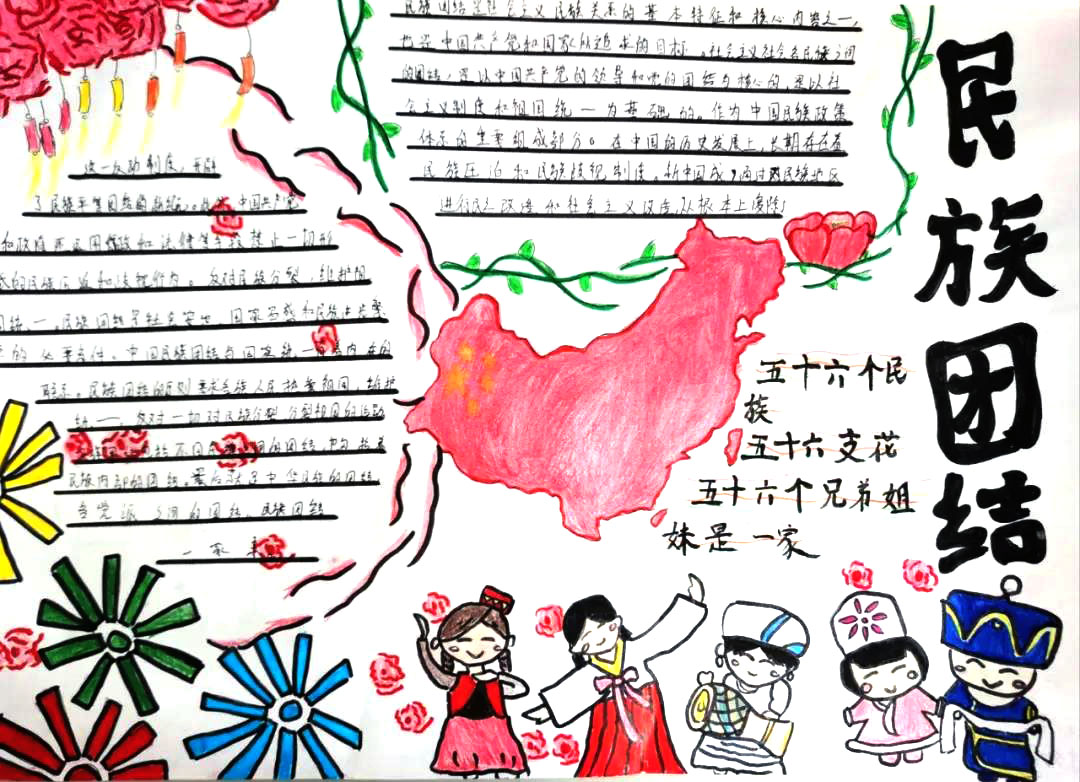 民族团结
民族团结是社会主义民族关系的基本特征和核心内容之一,
也是中国共产党和国家 追求的目标。社会主义社会各民族之间
的团结,是以中国共产党的领导和党的团结为核心的,是以社
会主义制度和祖国统一为基础的。作为中国民族政策
体系的重要组成部分。在中国的历史发展上,长期存在着
民族压迫和民族歧视制度。新中国成,通过 民族地区
进行民主改造和社会主义改造,从根本上废除
这一反动制度,开辟
了民族平等团结 新纪元。 中国共产党
和政府 民国 和法律等手段禁止一切形
式的民族压迫和 行为。反对民族分裂,维护祖
国统一。民族团结是社会安定、国家 和民族共荣
的必要条件。中国民族团结与国家统一 内在的
联系。民族团结的原则要求各族人民热爱祖国,维护
统一,反对一切对民族分裂 分裂祖国的活动
不同 的团结,
民族内部的团结。最后 是中华民族的团结,
各党派之间的团结、民族团结
一家亲
五十六个民
族
五十六支花
五十六个兄弟姐
妹是一家